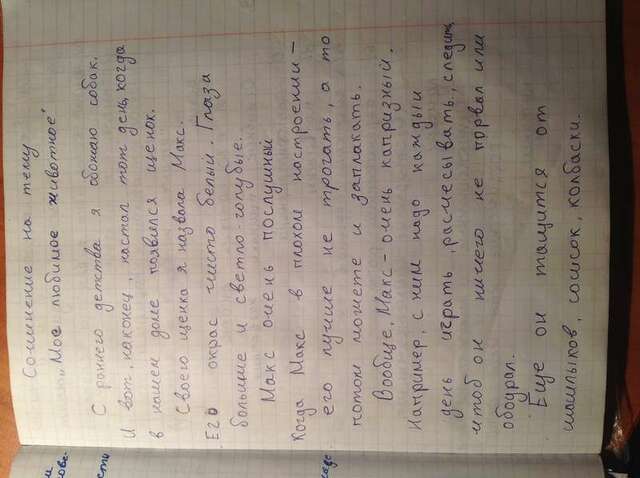 Сочинение на тему
"Мое любимое животное"
С раннего детства я обожаю собак.
И вот, наконец, настал тот день, когда
в нашем доме появился щенок.
Своего щенка я назвала Макс.
Его окрас чисто белый. Глаза
большие и светло-голубые.
Макс очень послушный
Когда Макс в плохом настроении –
его лучше не трогать, а то
потом можете и заплакать.
Вообще, Макс – очень капризный.
Например, с ним надо каждый
день играть, расчесывать, следить,
чтоб он ничего не порвал или
ободрал.
Еще он тащится от
шашлыков, сосисок, колбаски.